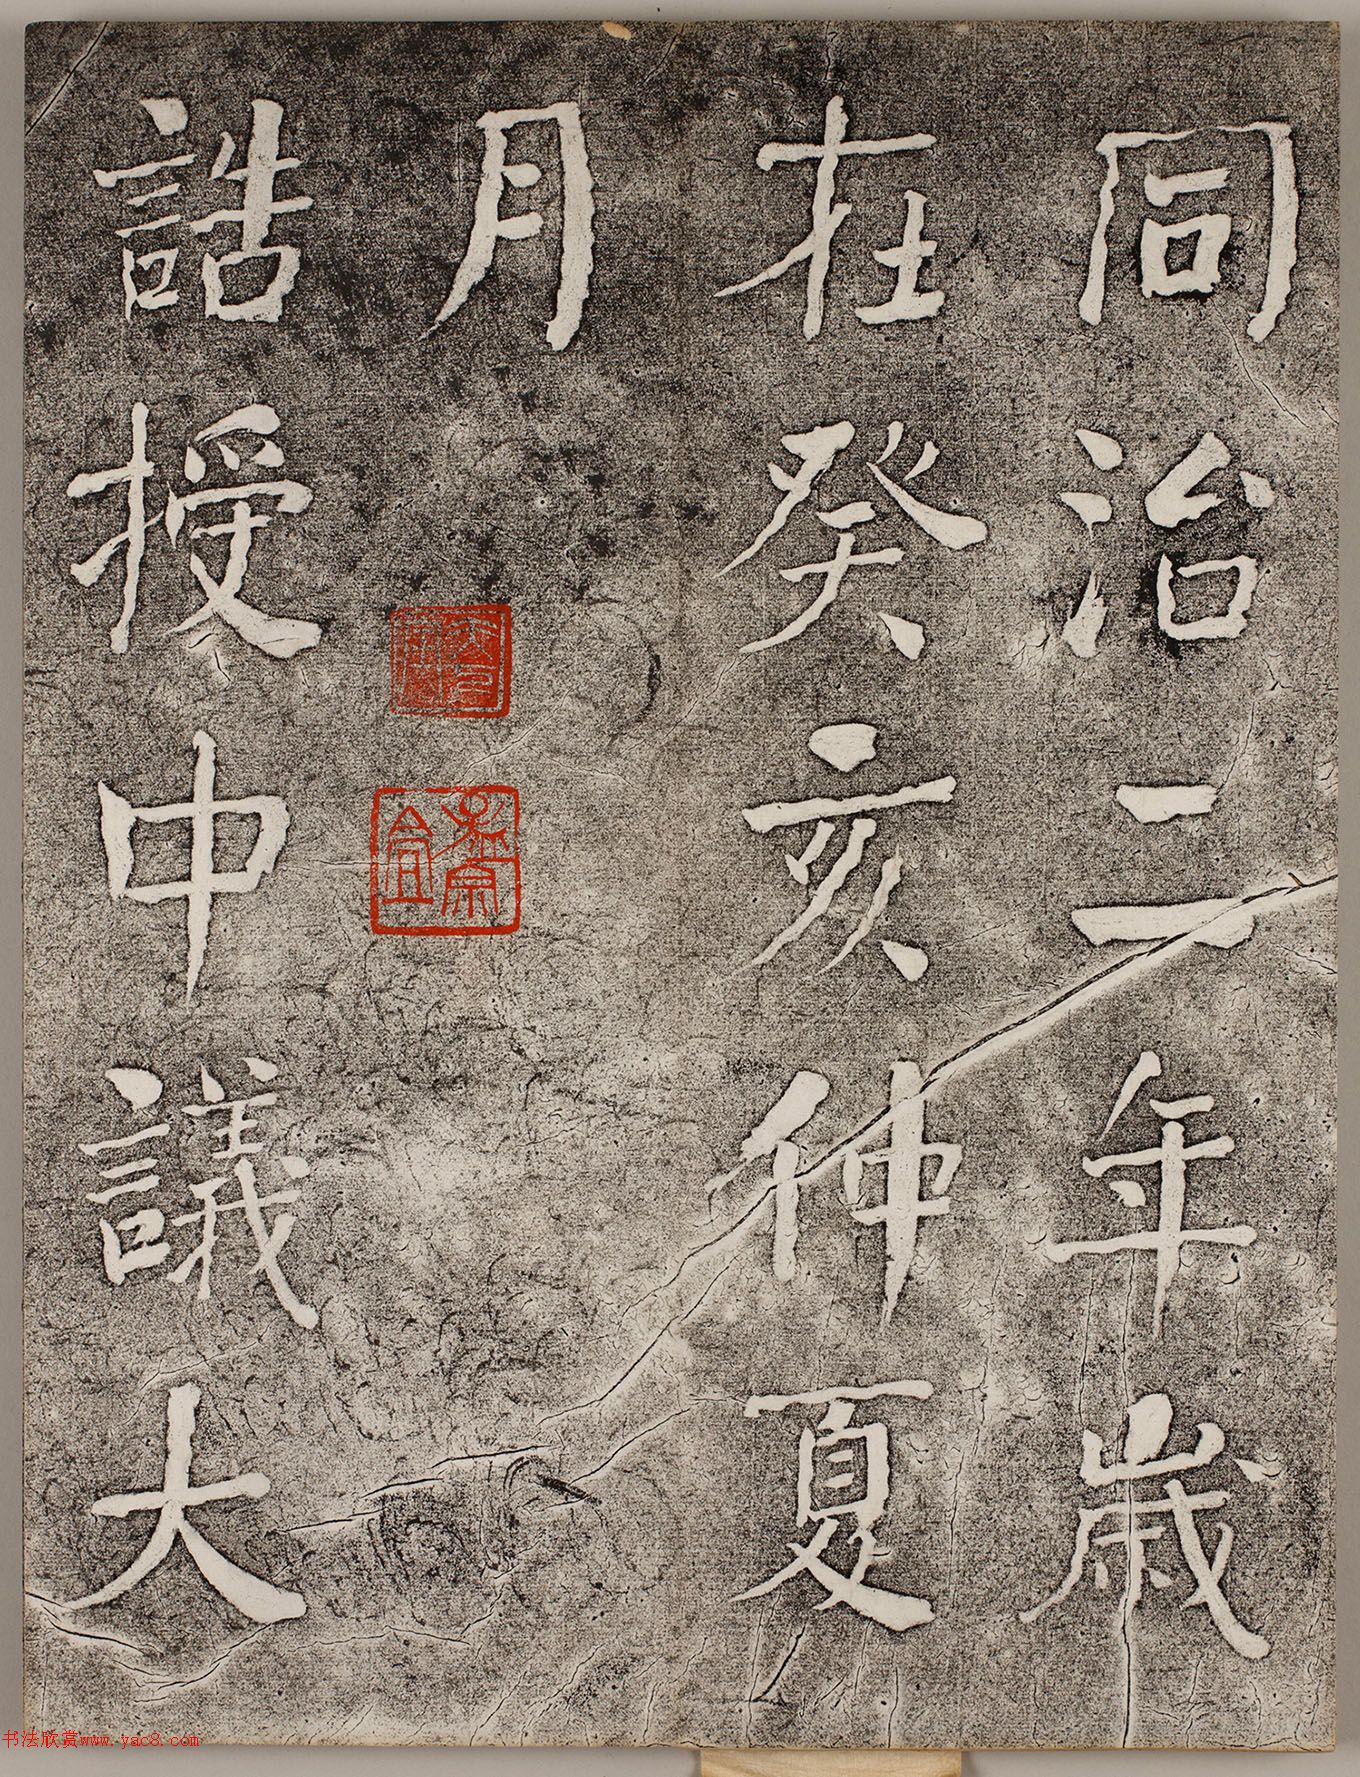 同治二年歲
在癸亥仲夏
月
誥授中議大
书法欣赏www.yac8.com